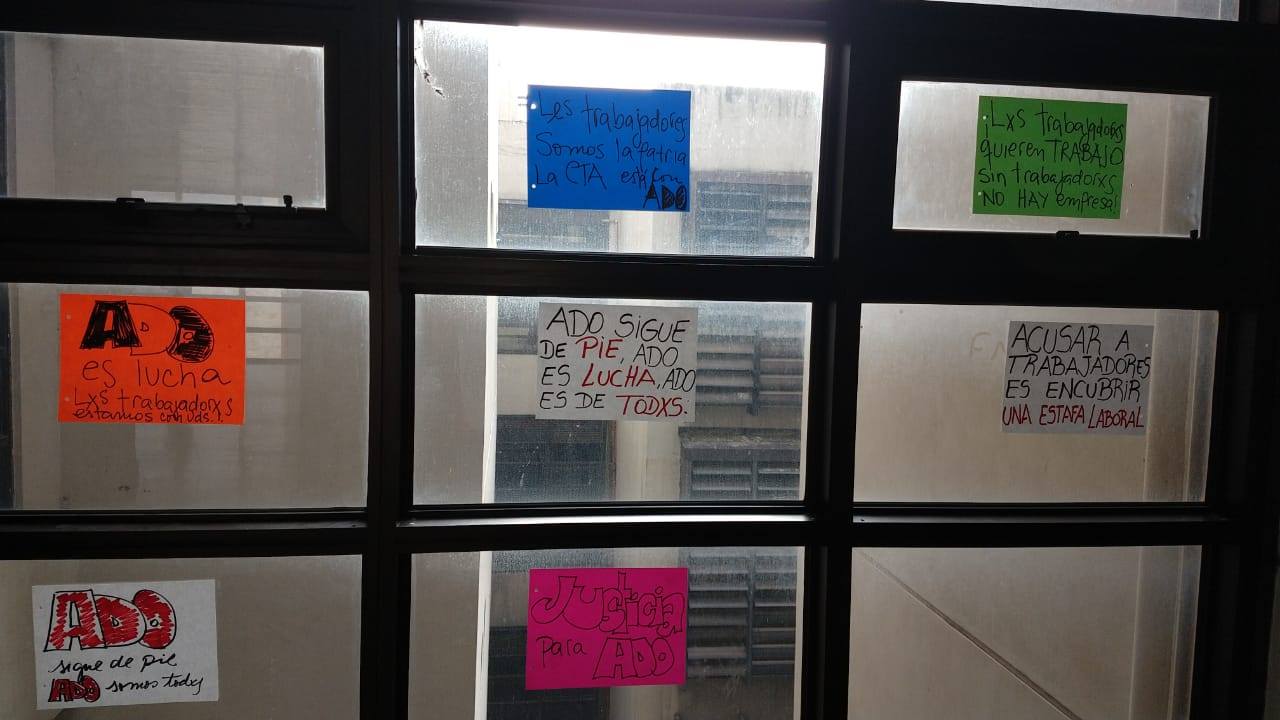 Les trabajadores
Somos la patria
La CTA está con
ADO
¡Lxs trabajadorxs
quieren TRABAJO
Sin trabajadorxs
NO HAY empresa!
ADO
es lucha
Lxs trabajadorxs
estamos con uds.!
ADO SIGUE
DE PIE, ADO
ES LUCHA, ADO
ES DE TODXS.
ACUSAR A
TRABAJADORES
ES ENCUBRIR
UNA ESTAFA LABORAL
ADO
sigue de pie
ADO somos todxs
Justicia
para ADO